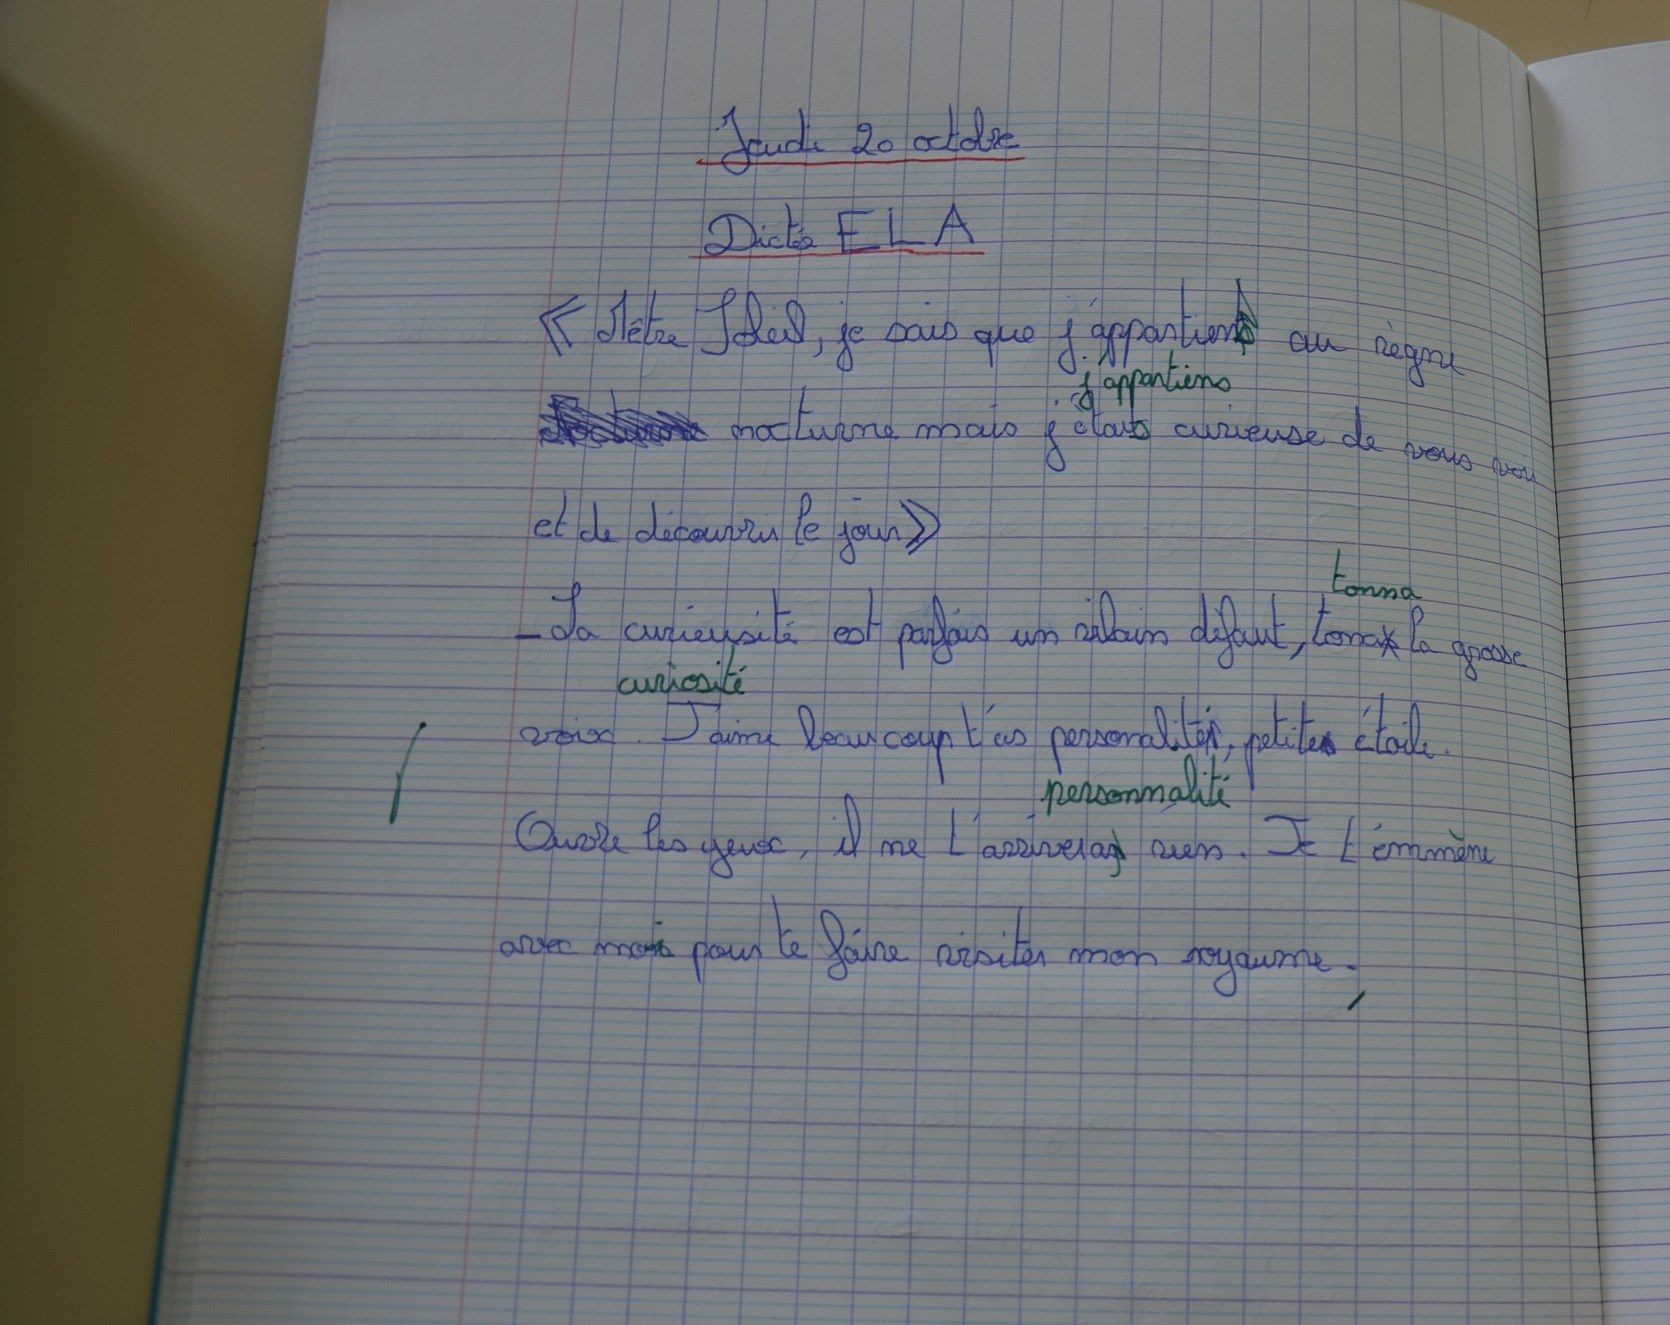 Jeudi 20 octobre
Dictée ELA
« Maître Soleil, je sais que j'appartient au règne
j'appartiens
nocturne mais j'étais curieuse de vous voir
et de découvrir le jour »
tonna
- La curieusité est parfois un vilain défaut, tona la grosse
curiosité
voix. J'aime beaucoup t'as personalité, petite étoile.
personnalité
Ouvre les yeux, il ne t'arrivera rien. Je t'émmène
avec moi pour te faire visiter mon royaume.